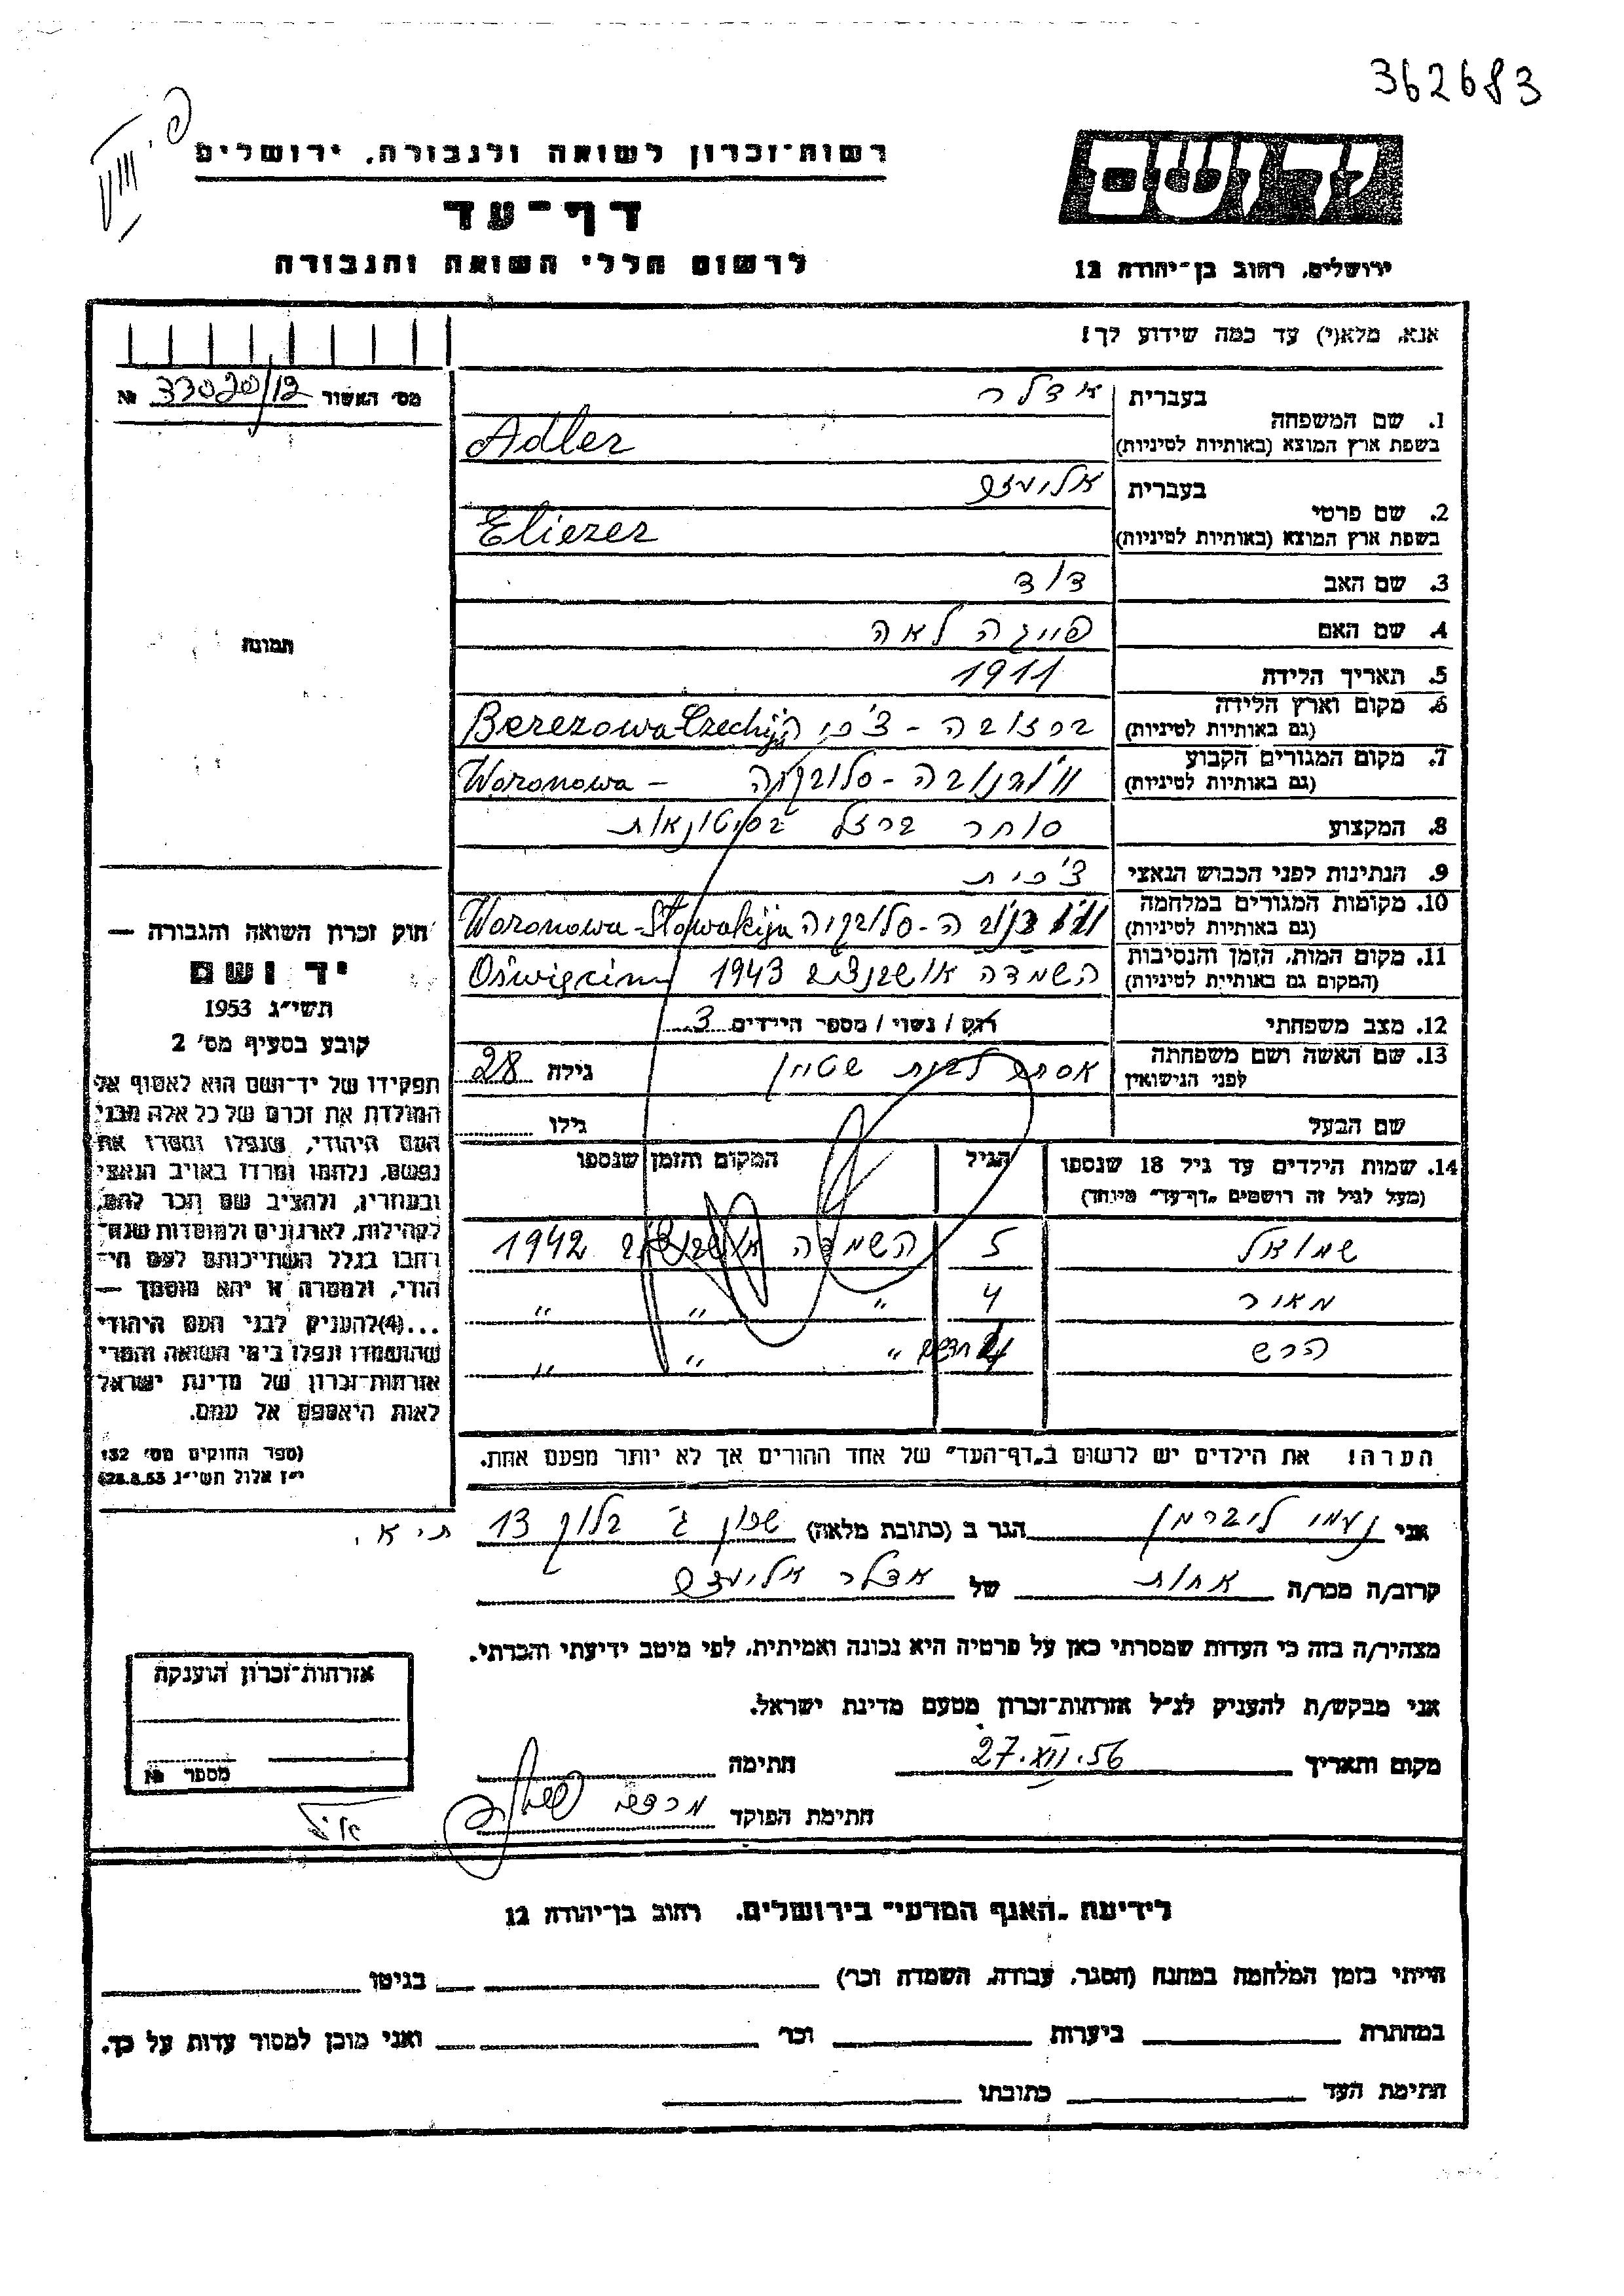 362683
יד ושם
רשות־זכרון לשואה ולגבורה, ירושלים
דף־עד
לרשום חללי השואה והגבורה
ירושלים, רחוב בן־יהודה 12
אנא, מלא(י) עד כמה שידוע לך!
מס׳ האשור № 33020/12
בעברית אדלר
1. שם המשפחה
בשפת ארץ המוצא (באותיות לטיניות) Adler
בעברית אליעזר
2. שם פרטי
בשפת ארץ המוצא (באותיות לטיניות) Eliezer
3. שם האב דוד
4. שם האם פייגה לאה
תמונה
5. תאריך הלידה 1911
6. מקום וארץ הלידה
(גם באותיות לטיניות) ברזובה - צ׳כיה Berezowa Czechija
7. מקום המגורים הקבוע
(גם באותיות לטיניות) וורנובה - סלובקיה Woronowa -
8. המקצוע סוחר ברזל בסיטונאות
9. הנתינות לפני הכבוש הנאצי צ׳כית
10. מקומות המגורים במלחמה
(גם באותיות לטיניות) וורנובה - סלובקיה Woronowa - Słowakija
11. מקום המות, הזמן והנסיבות
(המקום גם באותיות לטיניות) השמדה אושבנצים 1943 Oświęcim
12. מצב משפחתי רוק / נשוי / מספר הילדים 3
13. שם האשה ושם משפחתה
לפני הנישואין אסתר שטיין גילה 28
שם הבעל גילו
14. שמות הילדים עד גיל 18 שנספו
(מעל לגיל זה רושמים „דף־עד״ מיוחד)
הגיל
המקום והזמן שנספו
שמואל 5 השמדה 1942
מאיר 4 " " "
הרש חדשים " " "
הערה! את הילדים יש לרשום ב„דף־העד״ של אחד ההורים אך לא יותר מפעם אחת.
חוק זכרון השואה והגבורה —
יד ושם
תשי״ג 1953
קובע בסעיף מס׳ 2
תפקידו של יד־ושם הוא לאסוף אל
המולדת את זכרם של כל אלה מבני
העם היהודי, שנפלו ומסרו את
נפשם, נלחמו ומרדו באויב הנאצי
ובעוזריו, ולהציב שם וזכר להם,
לקהילות, לארגונים ולמוסדות שנח־
רבו בגלל השתייכותם לעם הי־
הודי, ולמטרה זו יהא מוסמך —
...(4)להעניק לבני העם היהודי
שהושמדו ונפלו בימי השואה והמרי
אזרחות־זכרון של מדינת ישראל
לאות היאספם אל עמם.
(ספר החוקים מס׳ 132
י״ז אלול תשי״ג 28.8.53)
אני נעמי ליברמן הגר ב (כתובת מלאה) שכון ג׳ בלוק 13 ת״א.
קרוב/ה מכר/ה אחות של אדלר אליעזר
מצהיר/ה בזה כי העדות שמסרתי כאן על פרטיה היא נכונה ואמיתית, לפי מיטב ידיעתי והכרתי.
אני מבקש/ת להעניק לנ״ל אזרחות־זכרון מטעם מדינת ישראל.
מקום ותאריך 27.XII.56 חתימה
חתימת הפוקד
אזרחות־זכרון הוענקה
מספר №
לידיעת „האגף המדעי״ בירושלים, רחוב בן־יהודה 12
הייתי בזמן המלחמה במחנה (הסגר, עבודה, השמדה וכר׳) בגיטו
במחתרת ביערות וכר׳ ואני מוכן למסור עדות על כך.
חתימת העד כתובתו